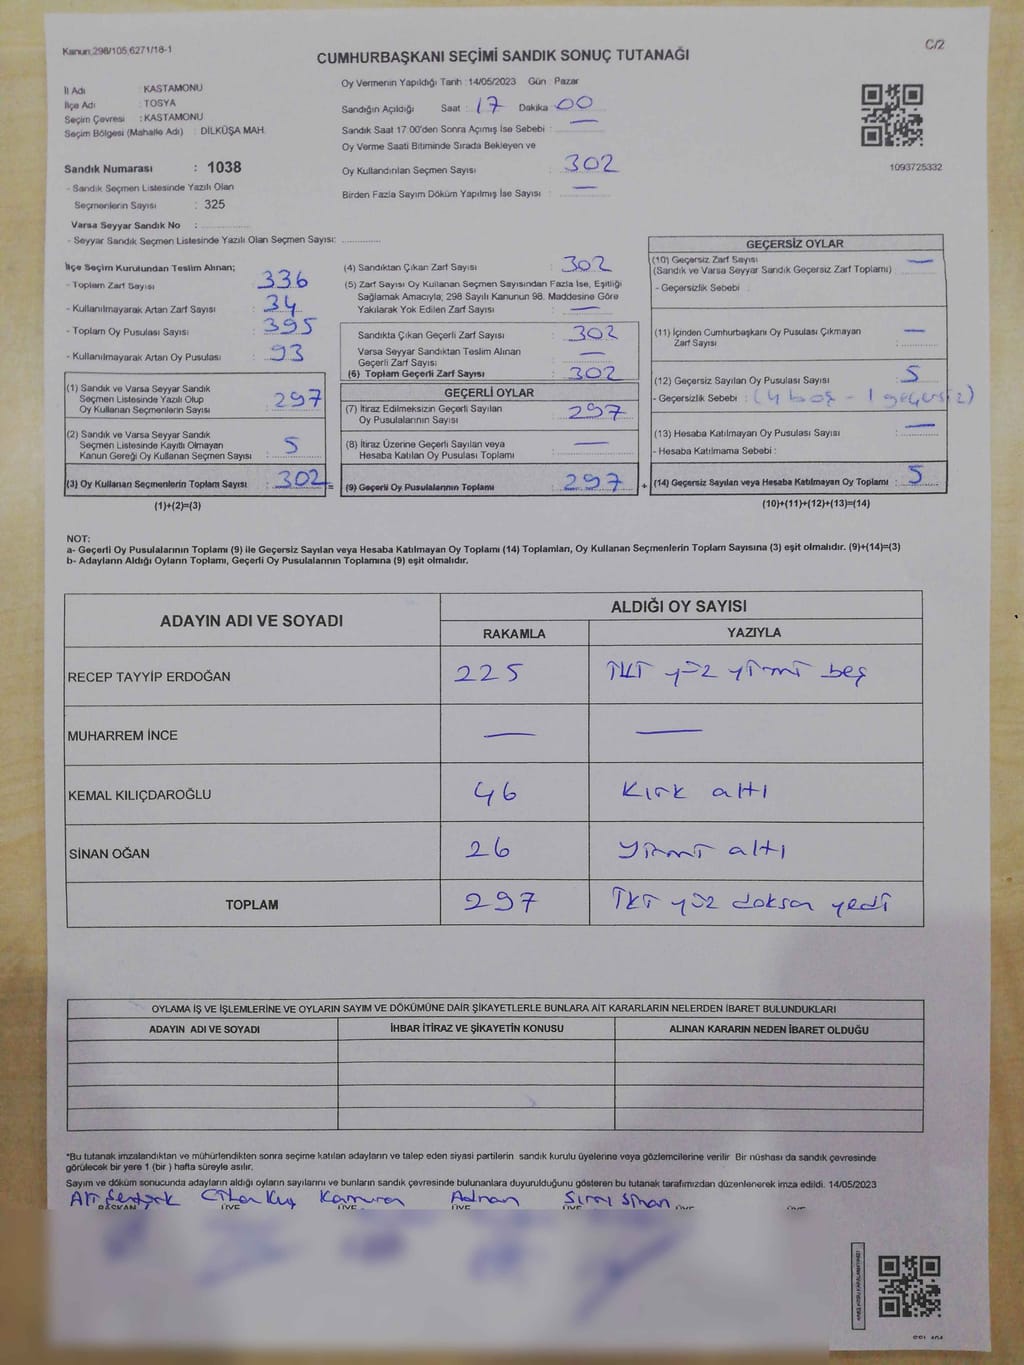 Kanun 298/105,6271/18-1
C/2
CUMHURBAŞKANI SEÇİMİ SANDIK SONUÇ TUTANAĞI
İl Adı : KASTAMONU
İlçe Adı : TOSYA
Seçim Çevresi : KASTAMONU
Seçim Bölgesi (Mahalle Adı) : DİLKÜŞA MAH.
Sandık Numarası : 1038
- Sandık Seçmen Listesinde Yazılı Olan
Seçmenlerin Sayısı : 325
Varsa Seyyar Sandık No :
- Seyyar Sandık Seçmen Listesinde Yazılı Olan Seçmen Sayısı:
Oy Vermenin Yapıldığı Tarih :14/05/2023 Gün : Pazar
Sandığın Açıldığı Saat : 17 Dakika : 00
Sandık Saat 17.00'den Sonra Açımış İse Sebebi : —
Oy Verme Saati Bitiminde Sırada Bekleyen ve
Oy Kullandırılan Seçmen Sayısı : 302
Birden Fazla Sayım Döküm Yapılmış İse Sayısı : —
1093725332
İlçe Seçim Kurulundan Teslim Alınan;
- Toplam Zarf Sayısı : 336
- Kullanılmayarak Artan Zarf Sayısı : 34
- Toplam Oy Pusulası Sayısı : 395
- Kullanılmayarak Artan Oy Pusulası : 93
(1) Sandık ve Varsa Seyyar Sandık
Seçmen Listesinde Yazılı Olup
Oy Kullanan Seçmenlerin Sayısı : 297
(2) Sandık ve Varsa Seyyar Sandık
Seçmen Listesinde Kayıtlı Olmayan
Kanun Gereği Oy Kullanan Seçmen Sayısı : 5
(3) Oy Kullanan Seçmenlerin Toplam Sayısı : 302 =
(1)+(2)=(3)
(4) Sandıktan Çıkan Zarf Sayısı : 302
(5) Zarf Sayısı Oy Kullanan Seçmen Sayısından Fazla İse, Eşitliği
Sağlamak Amacıyla; 298 Sayılı Kanunun 98. Maddesine Göre
Yakılarak Yok Edilen Zarf Sayısı : —
Sandıkta Çıkan Geçerli Zarf Sayısı : 302
Varsa Seyyar Sandıktan Teslim Alınan
Geçerli Zarf Sayısı : —
(6) Toplam Geçerli Zarf Sayısı : 302
GEÇERLİ OYLAR
(7) İtiraz Edilmeksizin Geçerli Sayılan
Oy Pusulalarının Sayısı : 297
(8) İtiraz Üzerine Geçerli Sayılan veya
Hesaba Katılan Oy Pusulası Toplamı : —
(9) Geçerli Oy Pusulalarının Toplamı : 297 +
GEÇERSİZ OYLAR
(10) Geçersiz Zarf Sayısı : —
(Sandık ve Varsa Seyyar Sandık Geçersiz Zarf Toplamı)
- Geçersizlik Sebebi :
(11) İçinden Cumhurbaşkanı Oy Pusulası Çıkmayan
Zarf Sayısı : —
(12) Geçersiz Sayılan Oy Pusulası Sayısı : 5
- Geçersizlik Sebebi : (4 boş - 1 geçersiz)
(13) Hesaba Katılmayan Oy Pusulası Sayısı : —
- Hesaba Katılmama Sebebi :
(14) Geçersiz Sayılan veya Hesaba Katılmayan Oy Toplamı : 5
(10)+(11)+(12)+(13)=(14)
NOT:
a- Geçerli Oy Pusulalarının Toplamı (9) ile Geçersiz Sayılan veya Hesaba Katılmayan Oy Toplamı (14) Toplamları, Oy Kullanan Seçmenlerin Toplam Sayısına (3) eşit olmalıdır. (9)+(14)=(3)
b- Adayların Aldığı Oyların Toplamı, Geçerli Oy Pusulalarının Toplamına (9) eşit olmalıdır.
ADAYIN ADI VE SOYADI
ALDIĞI OY SAYISI
RAKAMLA YAZIYLA
RECEP TAYYİP ERDOĞAN 225 İki yüz yirmi beş
MUHARREM İNCE — —
KEMAL KILIÇDAROĞLU 46 Kırk altı
SİNAN OĞAN 26 yirmi altı
TOPLAM 297 İki yüz doksan yedi
OYLAMA İŞ VE İŞLEMLERİNE VE OYLARIN SAYIM VE DÖKÜMÜNE DAİR ŞİKAYETLERLE BUNLARA AİT KARARLARIN NELERDEN İBARET BULUNDUKLARI
ADAYIN ADI VE SOYADI İHBAR İTİRAZ VE ŞİKAYETİN KONUSU ALINAN KARARIN NEDEN İBARET OLDUĞU
*Bu tutanak imzalandıktan ve mühürlendikten sonra seçime katılan adayların ve talep eden siyasi partilerin sandık kurulu üyelerine veya gözlemcilerine verilir Bir nüshası da sandık çevresinde
görülecek bir yere 1 (bir ) hafta süreyle asılır.
Sayım ve döküm sonucunda adayların aldığı oyların sayılarını ve bunların sandık çevresinde bulunanlara duyurulduğunu gösteren bu tutanak tarafımızdan düzenlenerek imza edildi. 14/05/2023
Cihan Kuş Kamuran Adnan Sinan
BAŞKAN ÜYE ÜYE ÜYE ÜYE ÜYE